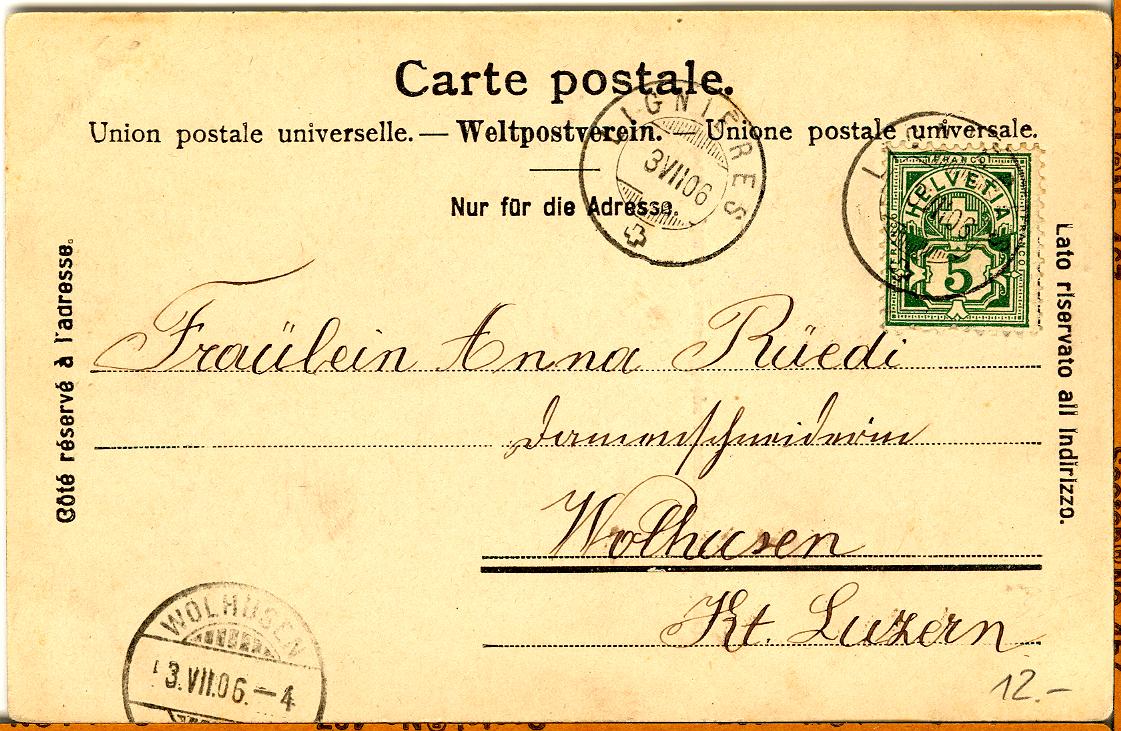 Carte postale.
Union postale universelle. — Weltpostverein. — Unione postale universale.
Nur für die Adresse.
LIGNIÈRES
3 VII 06
FRANCO
HELVETIA
FRANCO
5
Côté réservé à l'adresse.
Lato riservato all indirizzo.
Fräulein Anna Rüedi
Damenschneiderin
Wolhusen
Kt. Luzern
WOLHUSEN
3.VII.06.—4
12.-